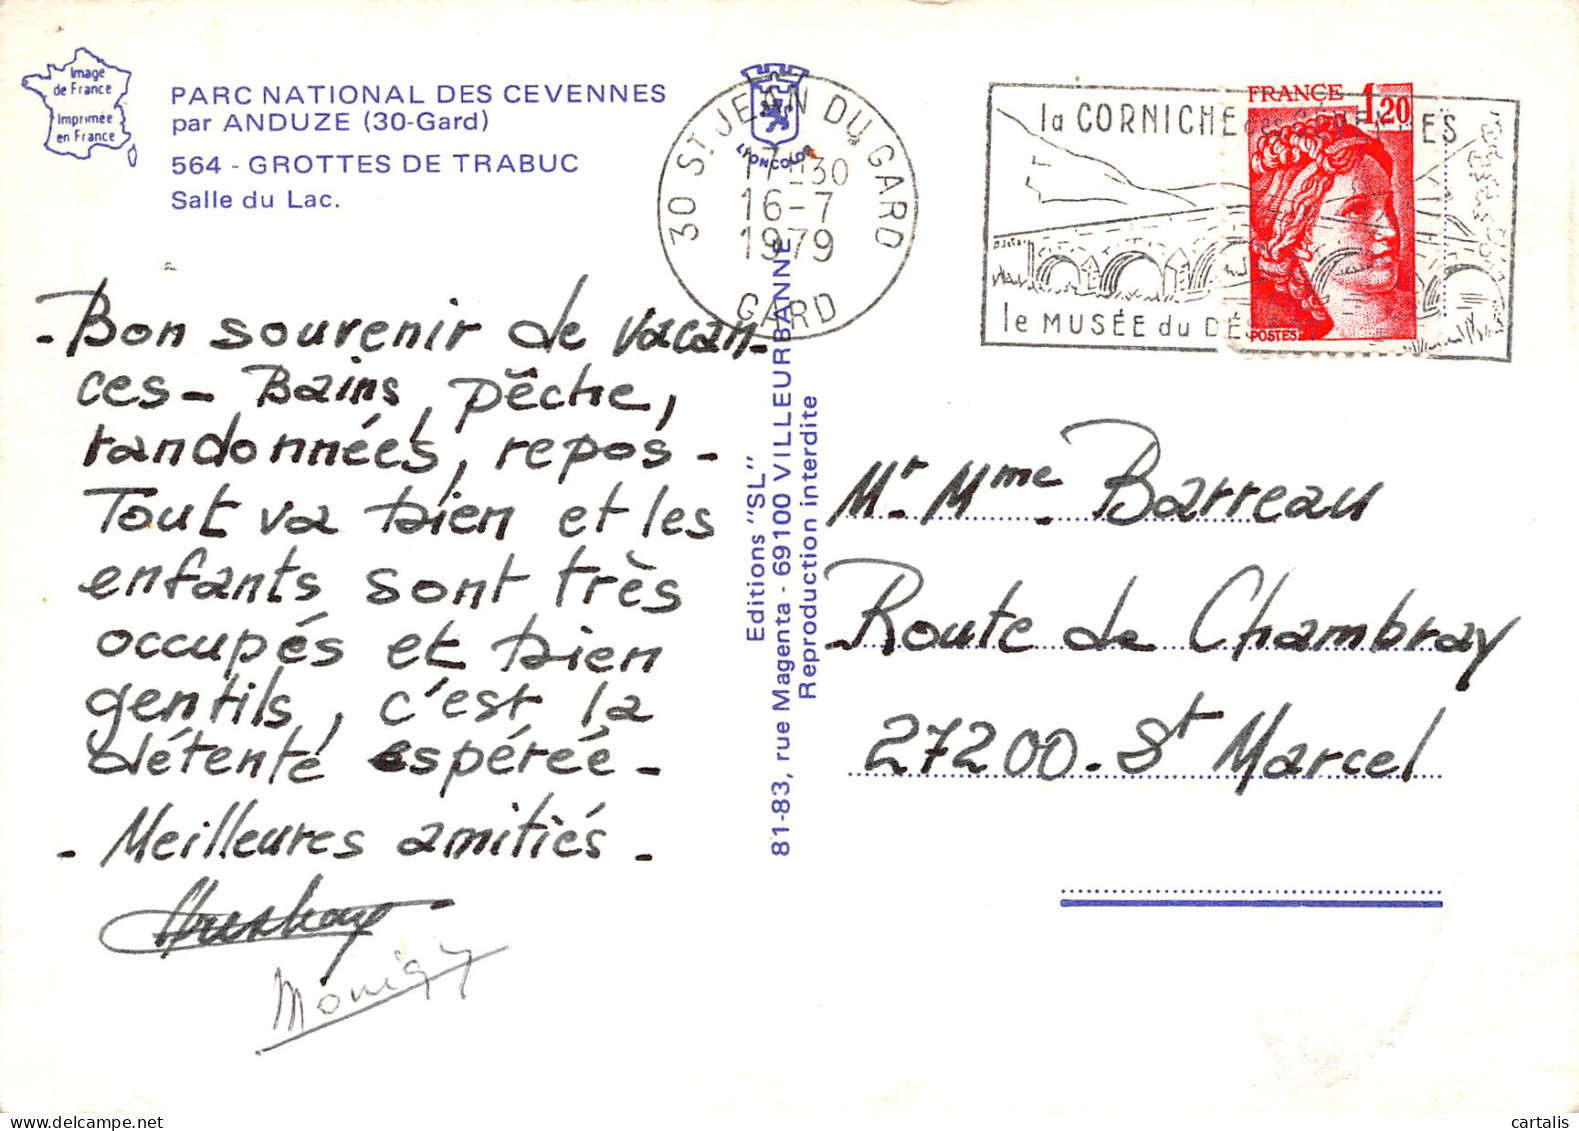 Image
de France
Imprimée
en France
PARC NATIONAL DES CEVENNES
par ANDUZE (30-Gard)
564 - GROTTES DE TRABUC
Salle du Lac.
LYONCOLOR
30 ST JEAN DU GARD
17-30
16-7
1979
GARD
la CORNICHE des CÉVENNES
le MUSÉE du DÉSERT
FRANCE 1,20
POSTES
- Bon souvenir de vacan-
ces - Bains, pêche,
randonnées, repos -
Tout va bien et les
enfants sont très
occupés et bien
gentils, c'est la
détente espérée -
- Meilleures amitiés -
Editions "SL"
81-83, rue Magenta - 69100 VILLEURBANNE
Reproduction interdite
Mr. Mme. Barreau
Route de Chambray
27200. St Marcel
cartalis